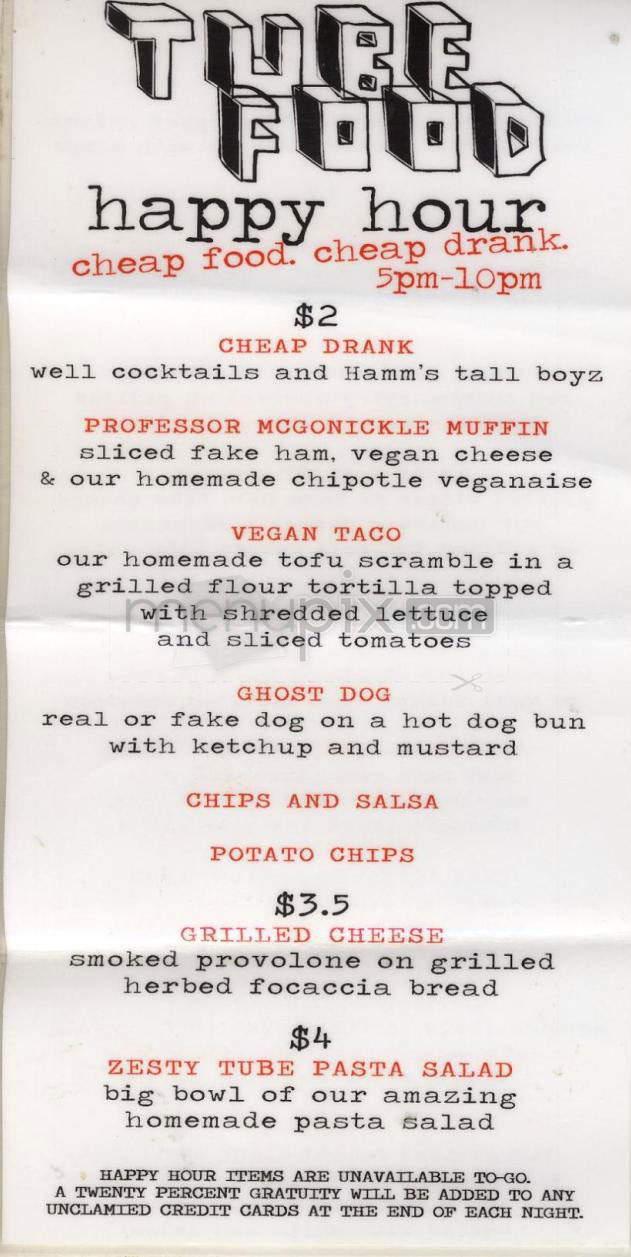 TUBE
FOOD
happy hour
cheap food. cheap drank.
5pm-10pm
$2
CHEAP DRANK
well cocktails and Hamm's tall boyz
PROFESSOR MCGONICKLE MUFFIN
sliced fake ham, vegan cheese
& our homemade chipotle veganaise
VEGAN TACO
our homemade tofu scramble in a
grilled flour tortilla topped
with shredded lettuce
menupix.com
and sliced tomatoes
GHOST DOG
real or fake dog on a hot dog bun
with ketchup and mustard
CHIPS AND SALSA
POTATO CHIPS
$3.5
GRILLED CHEESE
smoked provolone on grilled
herbed focaccia bread
$4
ZESTY TUBE PASTA SALAD
big bowl of our amazing
homemade pasta salad
HAPPY HOUR ITEMS ARE UNAVAILABLE TO-GO.
A TWENTY PERCENT GRATUITY WILL BE ADDED TO ANY
UNCLAMIED CREDIT CARDS AT THE END OF EACH NIGHT.